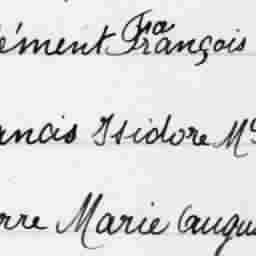 ément François
ancis Isidore Mc
rre Marie Caugu